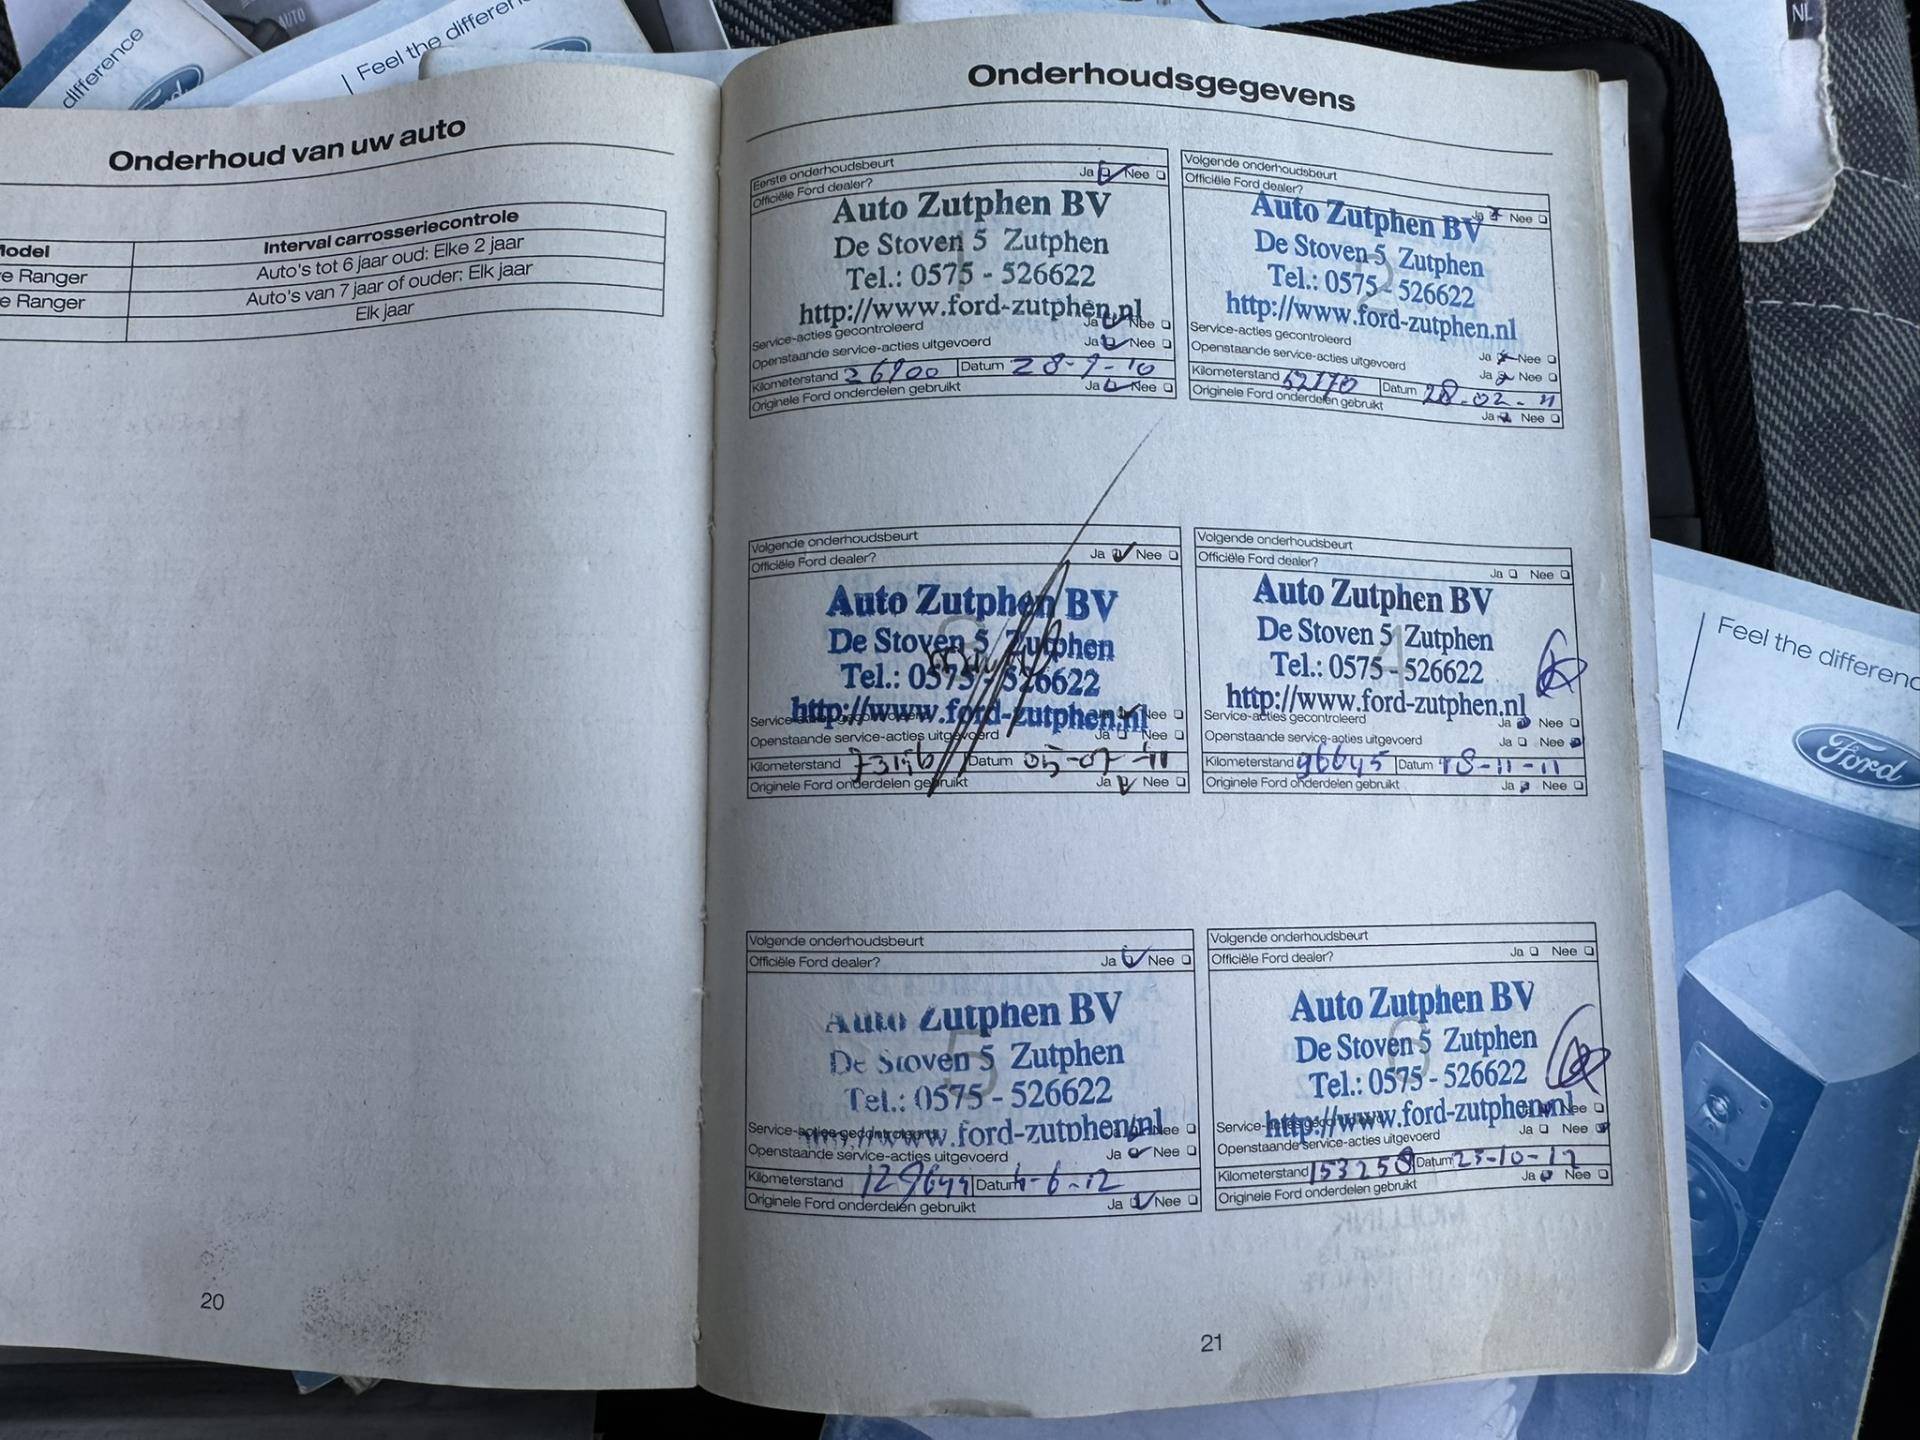 difference
Feel the differen
AUTO
NL
Onderhoud van uw auto
Model
Interval carrosseriecontrole
e Ranger
Auto's tot 6 jaar oud: Elke 2 jaar
e Ranger
Auto's van 7 jaar of ouder: Elk jaar
Elk jaar
20
Onderhoudsgegevens
Eerste onderhoudsbeurt
Officiële Ford dealer? Ja Nee
Auto Zutphen BV
De Stoven 5 Zutphen
Tel.: 0575 - 526622
http://www.ford-zutphen.nl
Service-acties gecontroleerd Ja Nee
Openstaande service-acties uitgevoerd Ja Nee
Kilometerstand 26900 Datum 28-9-10
Originele Ford onderdelen gebruikt Ja Nee
Volgende onderhoudsbeurt
Officiële Ford dealer? Ja Nee
Auto Zutphen BV
De Stoven 5 Zutphen
Tel.: 0575 - 526622
http://www.ford-zutphen.nl
Service-acties gecontroleerd Ja Nee
Openstaande service-acties uitgevoerd Ja Nee
Kilometerstand Datum 28-02-11
Originele Ford onderdelen gebruikt Ja Nee
Volgende onderhoudsbeurt
Officiële Ford dealer? Ja Nee
Auto Zutphen BV
De Stoven 5 Zutphen
Tel.: 0575 - 526622
http://www.ford-zutphen.nl
Service Ja Nee
Openstaande service-acties uitgevoerd Ja Nee
Kilometerstand Datum 05-07-11
Originele Ford onderdelen gebruikt Ja Nee
Volgende onderhoudsbeurt
Officiële Ford dealer? Ja Nee
Auto Zutphen BV
De Stoven 5 Zutphen
Tel.: 0575 - 526622
http://www.ford-zutphen.nl
Service-acties gecontroleerd Ja Nee
Openstaande service-acties uitgevoerd Ja Nee
Kilometerstand 96645 Datum 18-11-11
Originele Ford onderdelen gebruikt Ja Nee
Volgende onderhoudsbeurt
Officiële Ford dealer? Ja Nee
Auto Zutphen BV
De Stoven 5 Zutphen
Tel.: 0575 - 526622
http://www.ford-zutphen.nl
Service-acties gecontroleerd Ja Nee
Openstaande service-acties uitgevoerd Ja Nee
Kilometerstand Datum 4-6-12
Originele Ford onderdelen gebruikt Ja Nee
Volgende onderhoudsbeurt
Officiële Ford dealer? Ja Nee
Auto Zutphen BV
De Stoven 5 Zutphen
Tel.: 0575 - 526622
http://www.ford-zutphen.nl
Service-acties gecontroleerd Ja Nee
Openstaande service-acties uitgevoerd Ja Nee
Kilometerstand 153258 Datum 23-10-12
Originele Ford onderdelen gebruikt Ja Nee
21
Feel the differenc
Ford